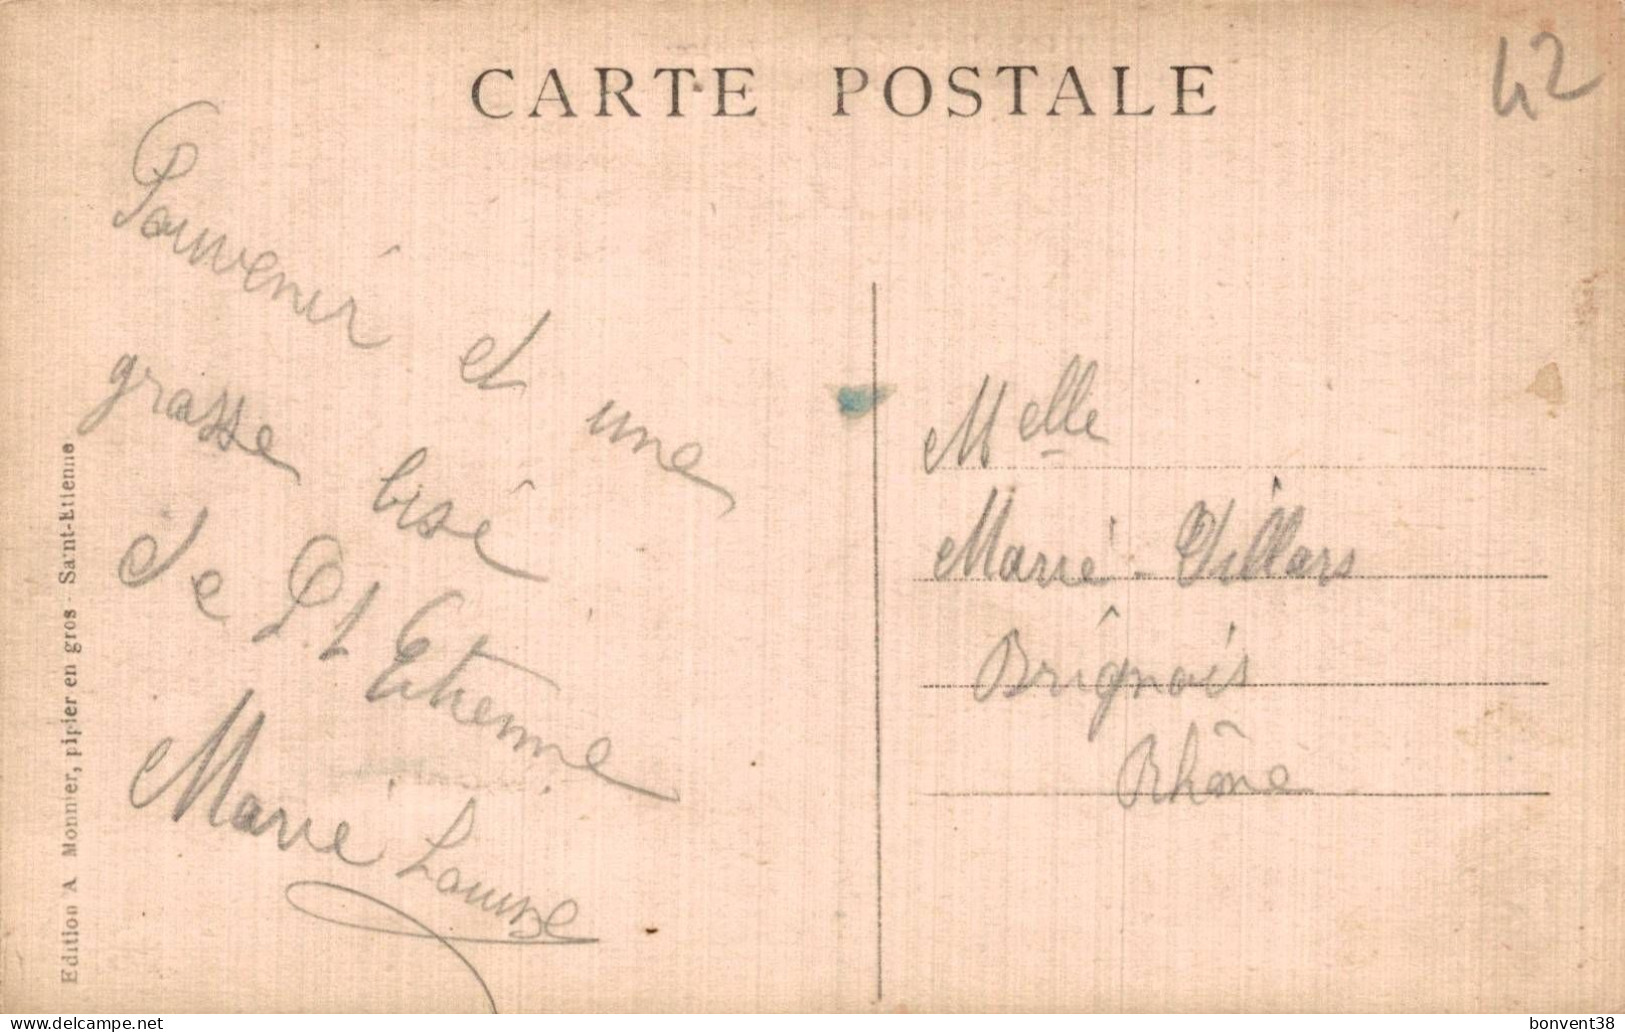 CARTE POSTALE
42
Souvenir et une
grasse bise
de St Etienne
Marie Louise
Melle
Marie Villars
Brignais
Rhône
Edition A Monnier, papier en gros - Saint-Etienne
bonvent38